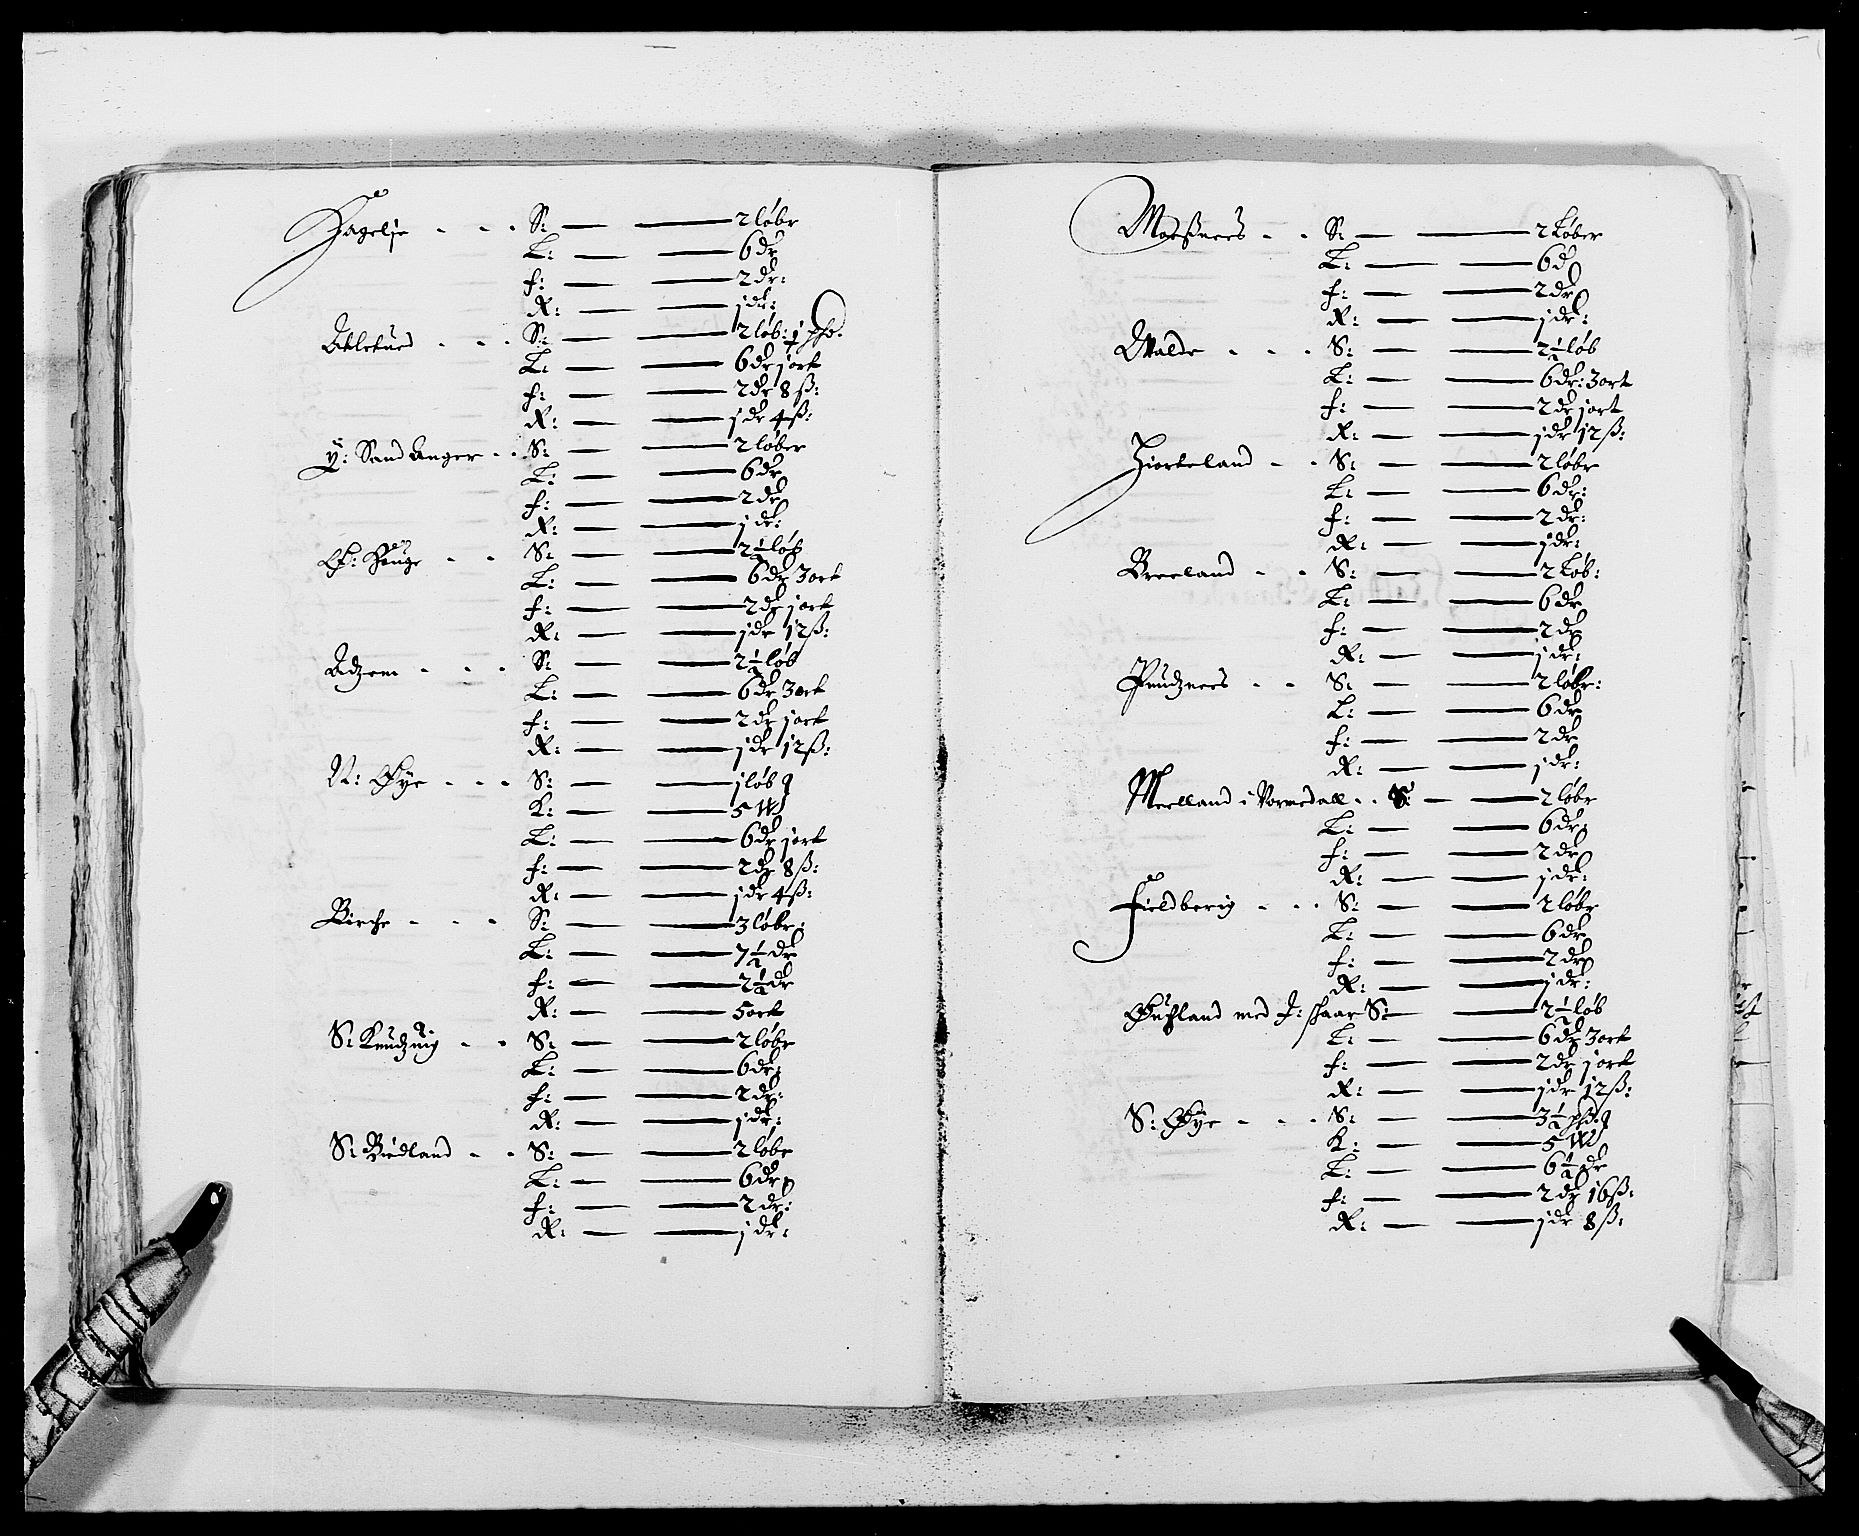 Hagelse - - - S: — — 2 løbr
L: — — 6 dr
f: — — 2 dr:
R: — — j dr:
S: — — 2 løb: j
L: — — 6 dr j ort
f: — — 2 dr 8 ß:
R: — — j dr 4 ß:
y: Sand anger - - S: — — 2 løber
L: — — 6 dr
f: — — 2 dr
R: — — j dr:
Hauge - - S: — — 2½ løb
L: — — 6 dr 3 ort
f: — — 2 dr j ort
R: — — j dr 12 ß:
Adzem - - - S: — — 2½ løb
L: — — 6 dr 3 ort
f: — — 2 dr j ort
R: — — j dr 12 ß:
N: Øye - - - S: — — j løb
K: — — 5 W
L: — — 6 dr j ort
f: — — 2 dr 8 ß:
R: — — j dr 4 ß:
Birche - - - S: — — 3 løbr:
L: — — 7½ dr
f: — — 2½ dr
R: — — 5 ort
S: Knudzuig - - S: — — 2 løbr
L: — — 6 dr:
f: — — 2 dr:
R: — — j dr:
S: Biødland - - S: — — 2 løbr
L: — — 6 dr
f: — — 2 dr:
R: — — j dr:
Moeßnees - - S: — — 2 Løber
L: — — 6 d
f: — — 2 dr
R: — — j dr:
Walde - - - S: — — 2½ løb
L: — — 6 dr: 3 ort
f: — — 2 dr j ort
R: — — j dr 12 ß:
Hiorteland - - S: — — 2 løbr
L: — — 6 dr:
f: — — 2 dr:
R: — — j dr:
Breeland - - S: — — 2 Løb:
L: — — 6 dr
f: — — 2 dr
R: — — j dr:
Knudznees - - S: — — 2 løbr:
L: — — 6 dr
f: — — 2 dr
R: — — j dr:
Meelland i Vormedall - - S: — — 2 løbr
L: — — 6 dr:
f: — — 2 dr
R: — — j dr:
Fieldberig - - - S: — — 2 løbr
L: — — 6 dr
f: — — 2 dr
R: — — j dr:
Øufland med J: skaar S: — — 2½ løb
L: — — 6 dr 3 ort
f: — — 2 dr j ort
R: — — j dr 12 ß:
S: Øye - - - S: — — 3½
K: — — 5 W
L: — — 6½ dr
f: — — 2 dr 16 ß:
R: — — j dr 8 ß: